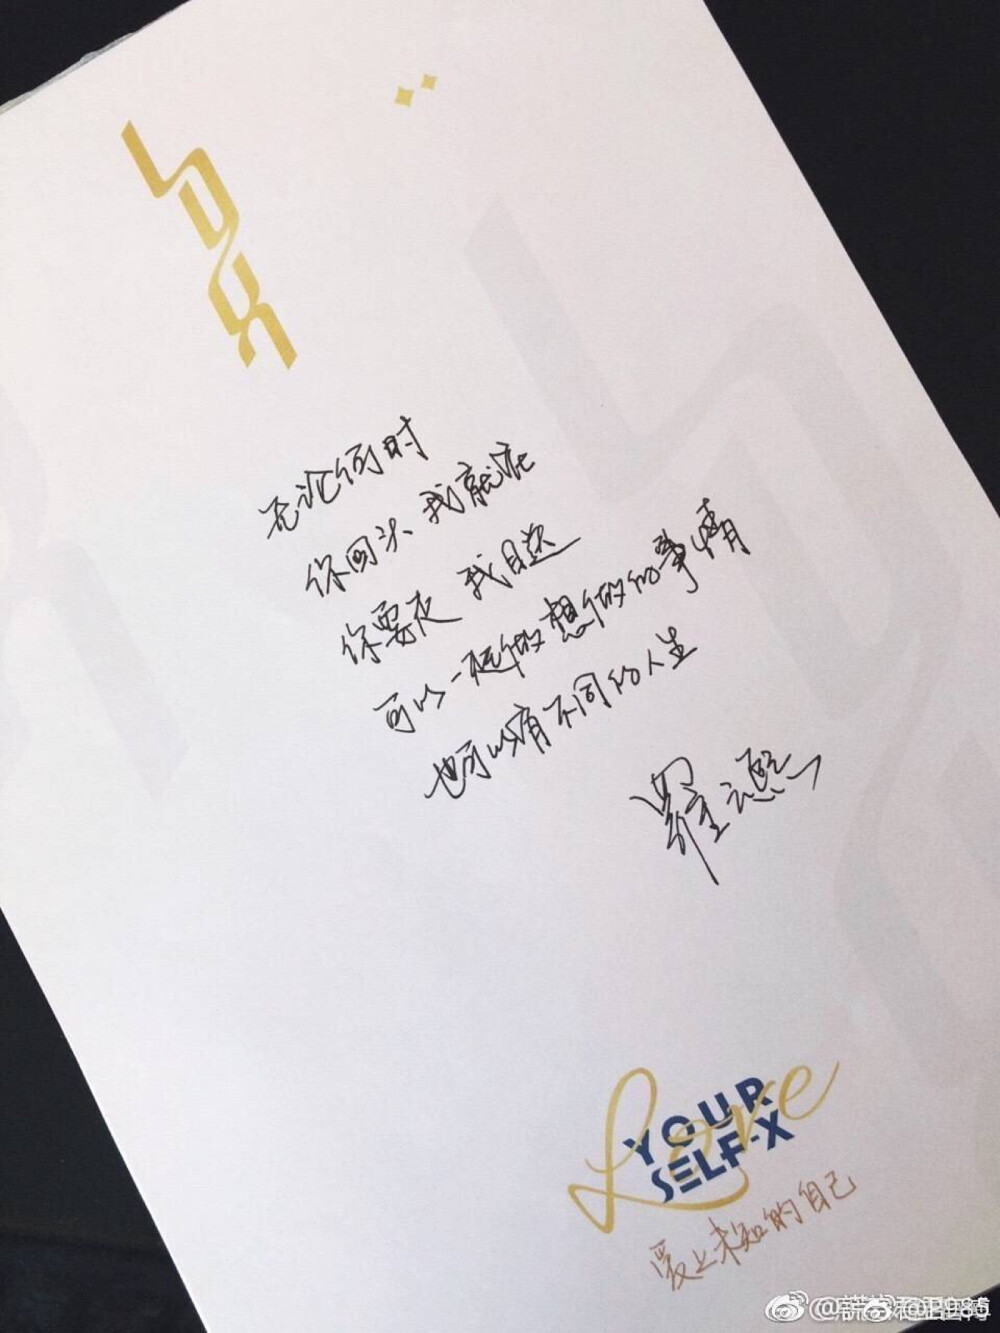 LYX
无论何时
你回头 我就在
你要走 我目送
可以一起做想做的事情
也可以有不同的人生
罗云熙
Love
YOUR
SELF-X
爱上未知的自己